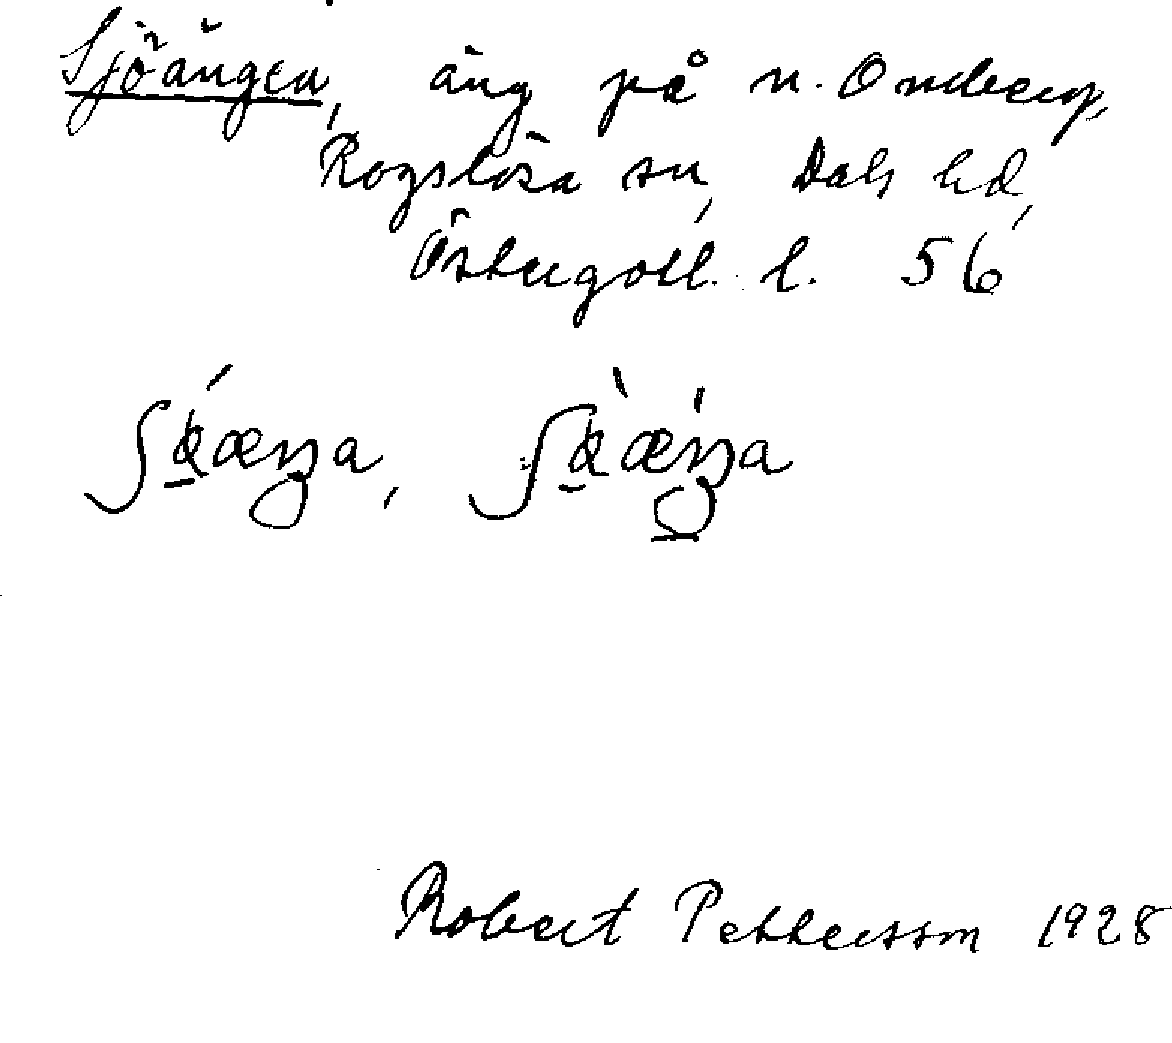 Sjöängen, äng på n. Omberg,
Rogslösa sn, Dals hd,
Östergötl. l. 56
Robert Pettersson 1928